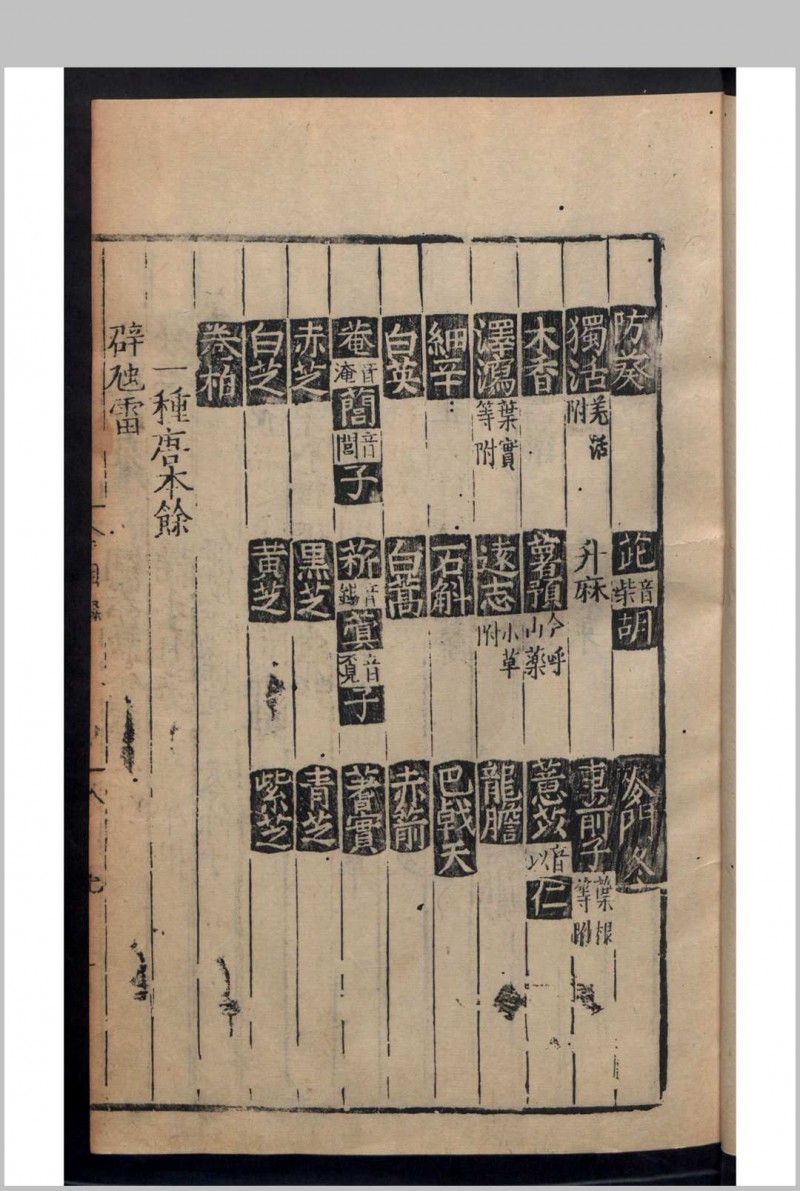 防葵 茈音柴胡 麥門冬
獨活羌活附 升麻 車前子葉根等附
木香 薯蕷今呼山藥 薏苡音以仁
澤瀉葉實等附 遠志小草附 龍膽
細辛 石斛 巴戟天
白英 白蒿 赤箭
菴音淹䕡音閭子 菥音錫蓂音覓子 蓍實
赤芝 黑芝 青芝
白芝 黃芝 紫芝
卷柏
一種唐本餘
辟虺雷